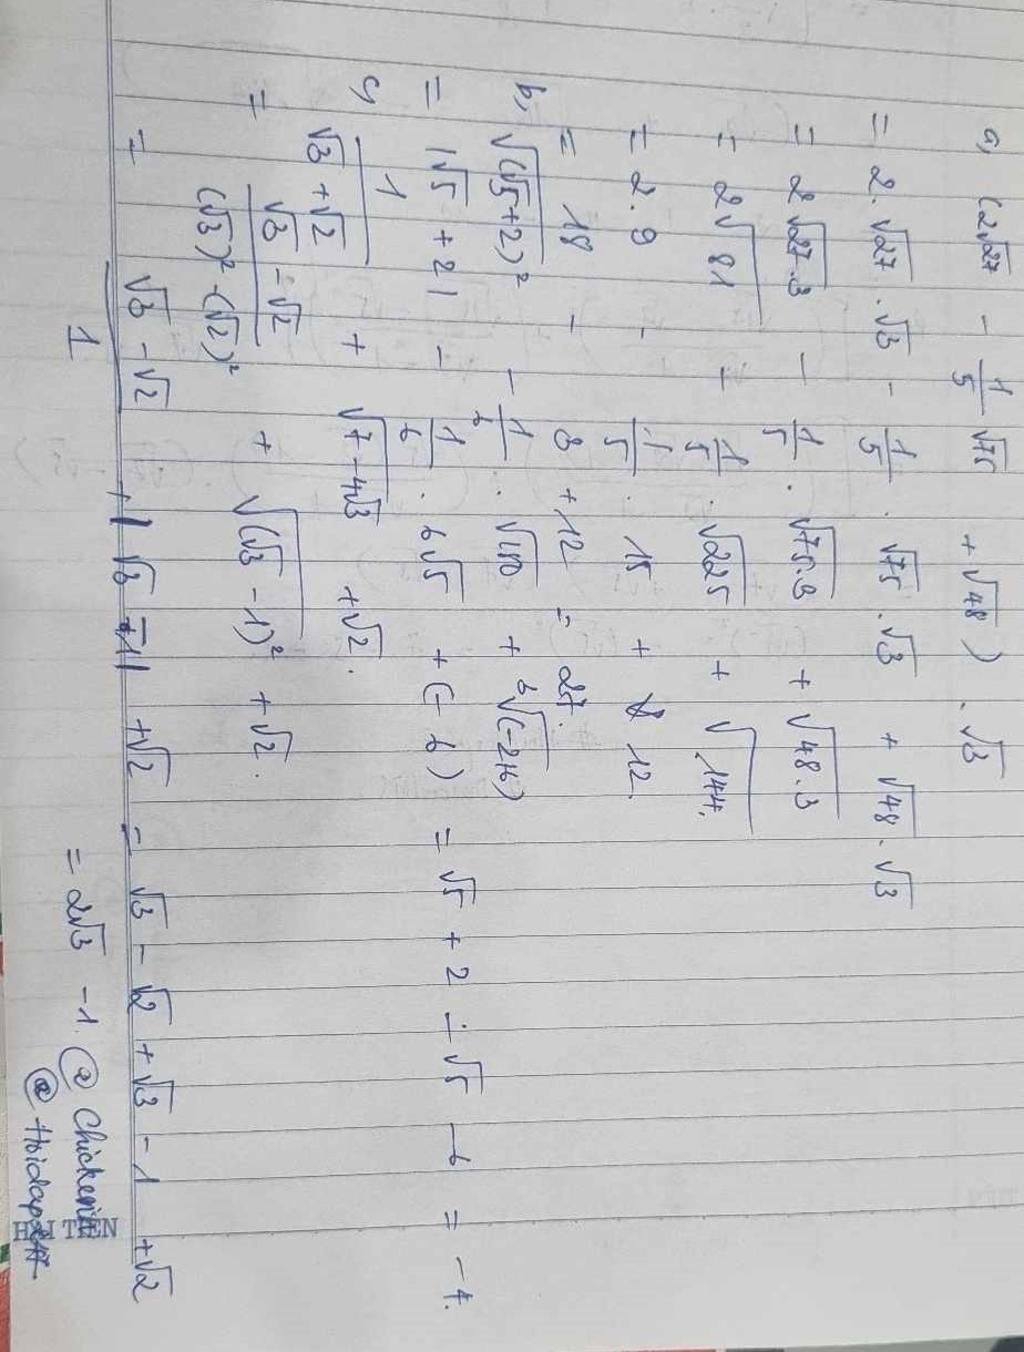 a, (2√27 - 1/5 √75 + √48) . √3
= 2. √27 . √3 - 1/5 . √75 . √3 + √48 . √3
= 2√27.3 - 1/5 . √75.3 + √48.3
= 2√81 - 1/5 . √225 + √144.
= 2.9 - 1/5 . 15 + 12.
= 18 - 3 + 12 = 27.
b, √(√5+2)² - 1/6 . √180 + ³√(-216)
= |√5 + 2| - 1/6 . 6√5 + (-6) = √5 + 2 - √5 - 6 = -4.
c, 1/(√3 + √2) + √7-4√3 + √2.
= (√3 - √2)/((√3)² - (√2)²) + √(√3 - 1)² + √2.
= (√3 - √2)/1 + |√3 - 1| + √2 = √3 - √2 + √3 - 1 + √2
= 2√3 - 1. @ Chicken
@ Hoidap247